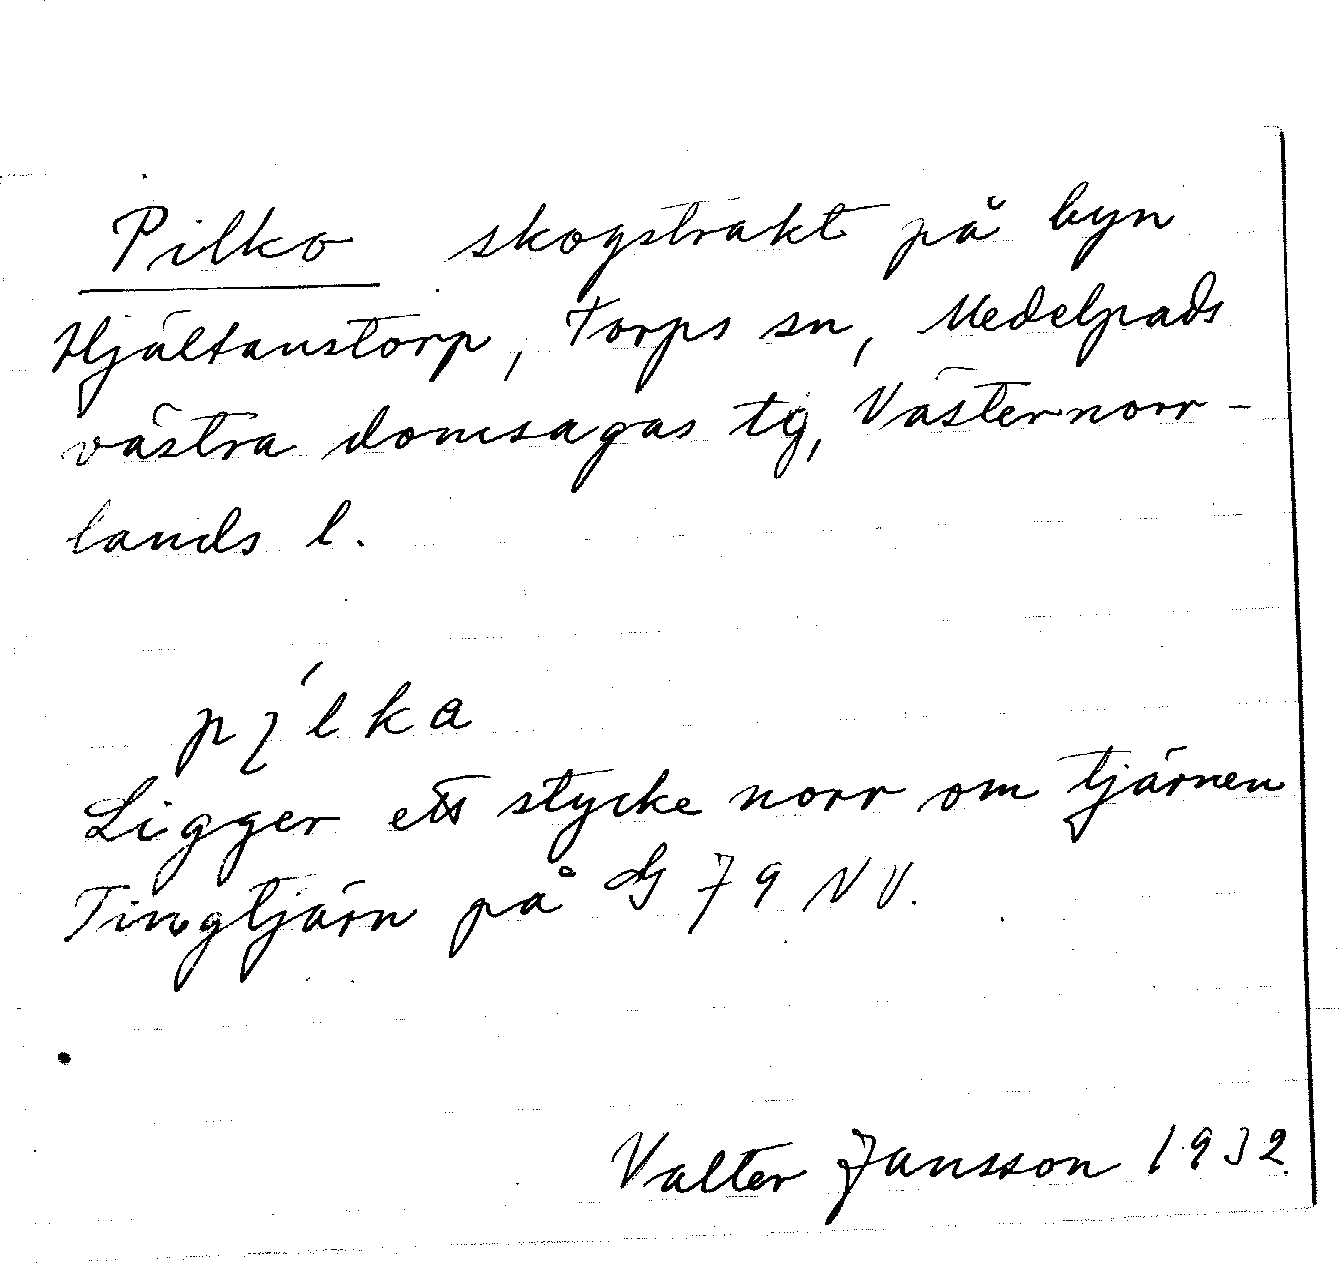 Pilko skogstrakt på byn
Hjältanstorp, Torps sn, Medelpads
västra domsagas tg, Västernorr-
lands l.
Ligger ett stycke norr om tjärnen
Tingtjärn på G 79 NV.
Valter Jansson 1932.